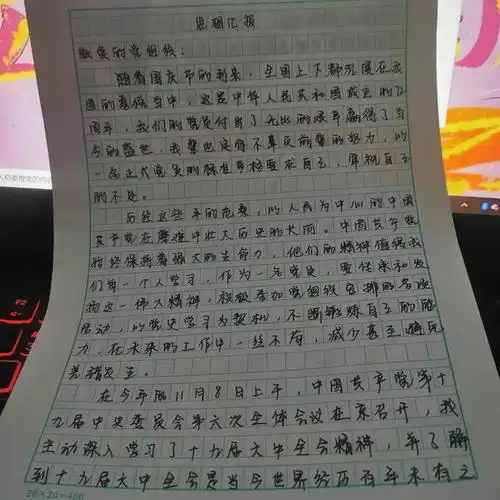 思想汇报
敬爱的党组织：
随着国庆节的到来，全国上下都沉浸在我
国的喜悦当中，这是中华人民共和国成立的72
周年，我们的党员付出了无比的艰辛赢得了当
今的盛世，我辈也定将不辜负前辈的努力，以
一名正式党员的标准严格要求自己，审视自己
的不足。
历经这些年的危难，以人民为中心的中国
共产党在磨难中壮大历史的长河。中国共产党
始终保持着强大的生命力，他们的精神值得我
们每一个人学习，作为一元党员，要传承和发
扬这一伟大精神，积极参加党组织安排的各项
活动，以党史学习为契机，不断锻炼自己的能
力，在未来的工作中一丝不苟，减少甚至避免
差错发生。
在今年的11月8日上午，中国共产党第十
九届中央委员会第六次全体会议在京召开，我
主动深入学习了十九届六中全会精神，并了解
到十九届六中全会是当今世界经历百年未有之
20×20=400